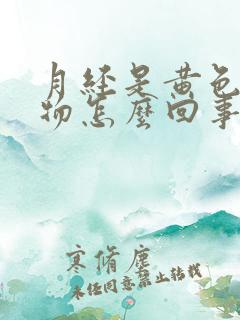 月经是黄色
物怎么回事
寒脩塵
未经同意禁止转载